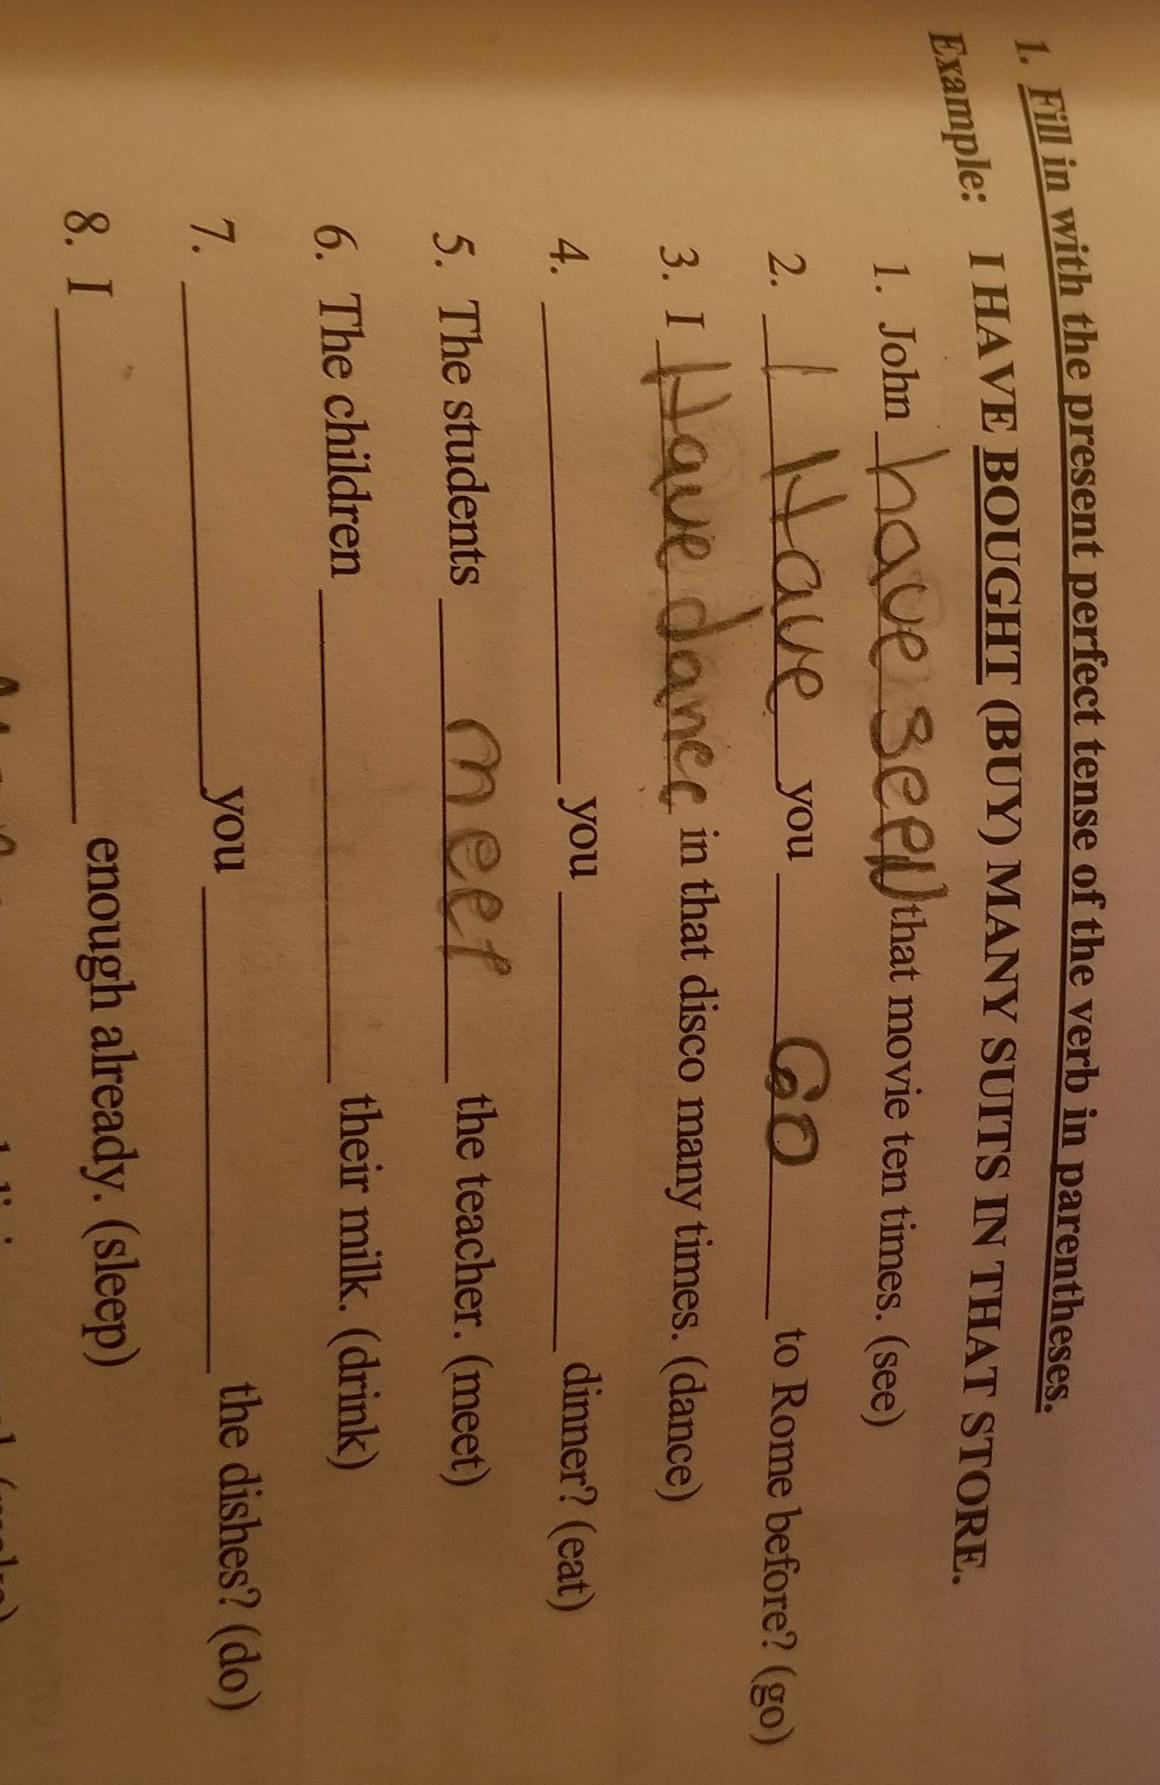 1. Fill in with the present perfect tense of the verb in parentheses.
Example: I HAVE BOUGHT (BUY) MANY SUITS IN THAT STORE.
1. John have seen that movie ten times. (see)
2. I Have you Go to Rome before? (go)
3. I Have dance in that disco many times. (dance)
4. ____ you ____ dinner? (eat)
5. The students meet the teacher. (meet)
6. The children ____ their milk. (drink)
7. ____ you ____ the dishes? (do)
8. I ____ enough already. (sleep)